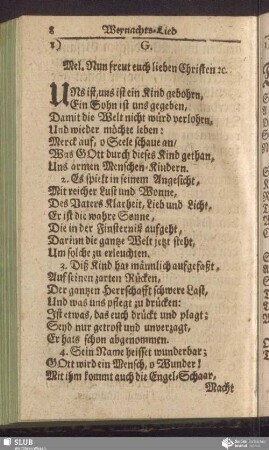 8 Weynachts-Lied
1) G.
Mel. Nun freut euch lieben Christen ꝛc.
UNs ist, uns ist ein Kind gebohrn,
Ein Sohn ist uns gegeben,
Damit die Welt nicht würd verlohrn,
Und wieder möchte leben:
Merck auf, o Seele schaue an/
Was GOtt durch dieses Kind gethan,
Uns armen Menschen-Kindern.
2. Es spielt in seinem Angesicht,
Mit reicher Lust und Wonne,
Des Vaters Klarheit, Lieb und Licht,
Er ist die wahre Sonne,
Die in der Finsterniß aufgeht,
Darinn die gantze Welt jetzt steht,
Um solche zu erleuchten.
3. Diß Kind hat männlich aufgefaßt,
Auf seinen zarten Rücken,
Der gantzen Herrschafft schwere Last,
Und was uns pflegt zu drücken:
Ist etwas, das euch drückt und plagt;
Seyd nur getrost und unverzagt,
Er hats schon abgenommen.
4. Sein Name heisset wunderbar;
GOtt wird ein Mensch, o Wunder!
Mit ihm kommt auch die Engel-Schaar,
Macht
SLUB